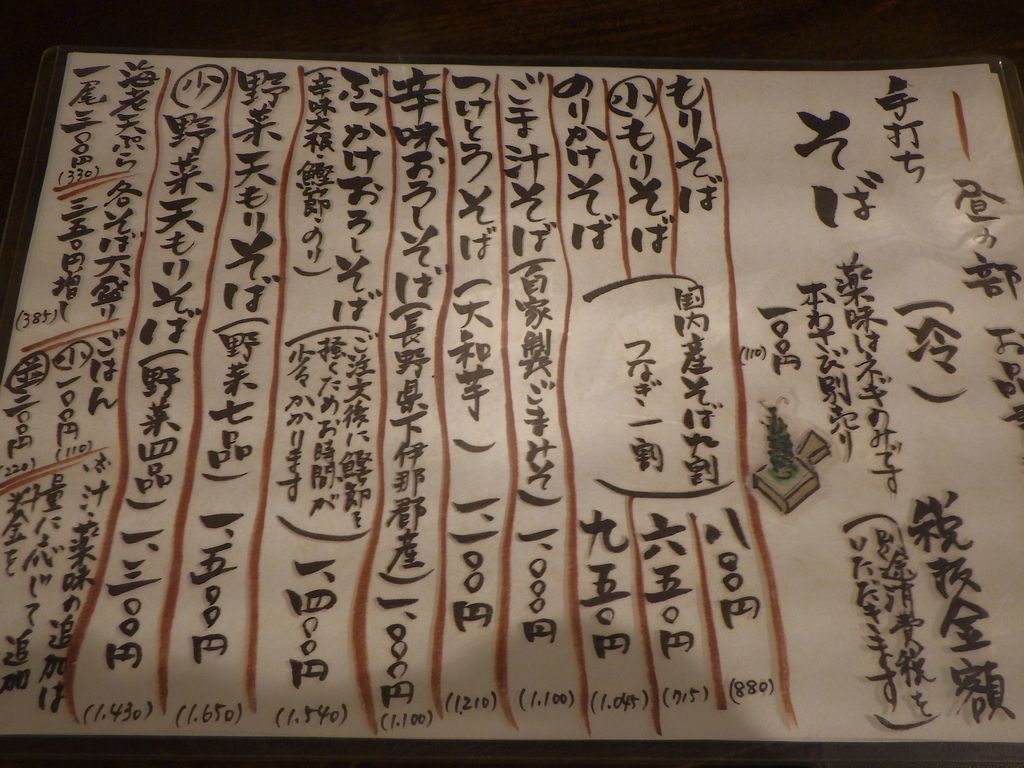 昼の部 お品
(冷)
税抜金額
(別途消費税を
いただきます)
手打ち
そば
薬味はネギのみです
本わさび別売り
一〇〇円
(110)
もりそば
八〇〇円
(880)
小もりそば
六五〇円
(715)
のりかけそば
九五〇円
(1.045)
(国内産そば九割
つなぎ一割)
ごま汁そば(自家製ごまみそ)
一、〇〇〇円
(1.100)
つけとろそば(大和芋)
一、一〇〇円
(1.210)
辛味おろしそば(長野県下伊那郡産)
一、〇〇〇円
(1.100)
ぶっかけおろしそば
(辛味大根・鰹節・のり)
(ご注文後に鰹節を
掻くためお時間が
少々かかります)
一、四〇〇円
(1.540)
野菜天もりそば(野菜七品)
一、五〇〇円
(1.650)
少野菜天もりそば(野菜四品)
一、三〇〇円
(1.430)
海老天ぷら
一尾三〇〇円
(330)
各そば大盛り
三五〇円増し
(385)
ごはん
小一〇〇円
(110)
二〇〇円
(220)
汁・薬味の追加は
量に応じて追加
料金を